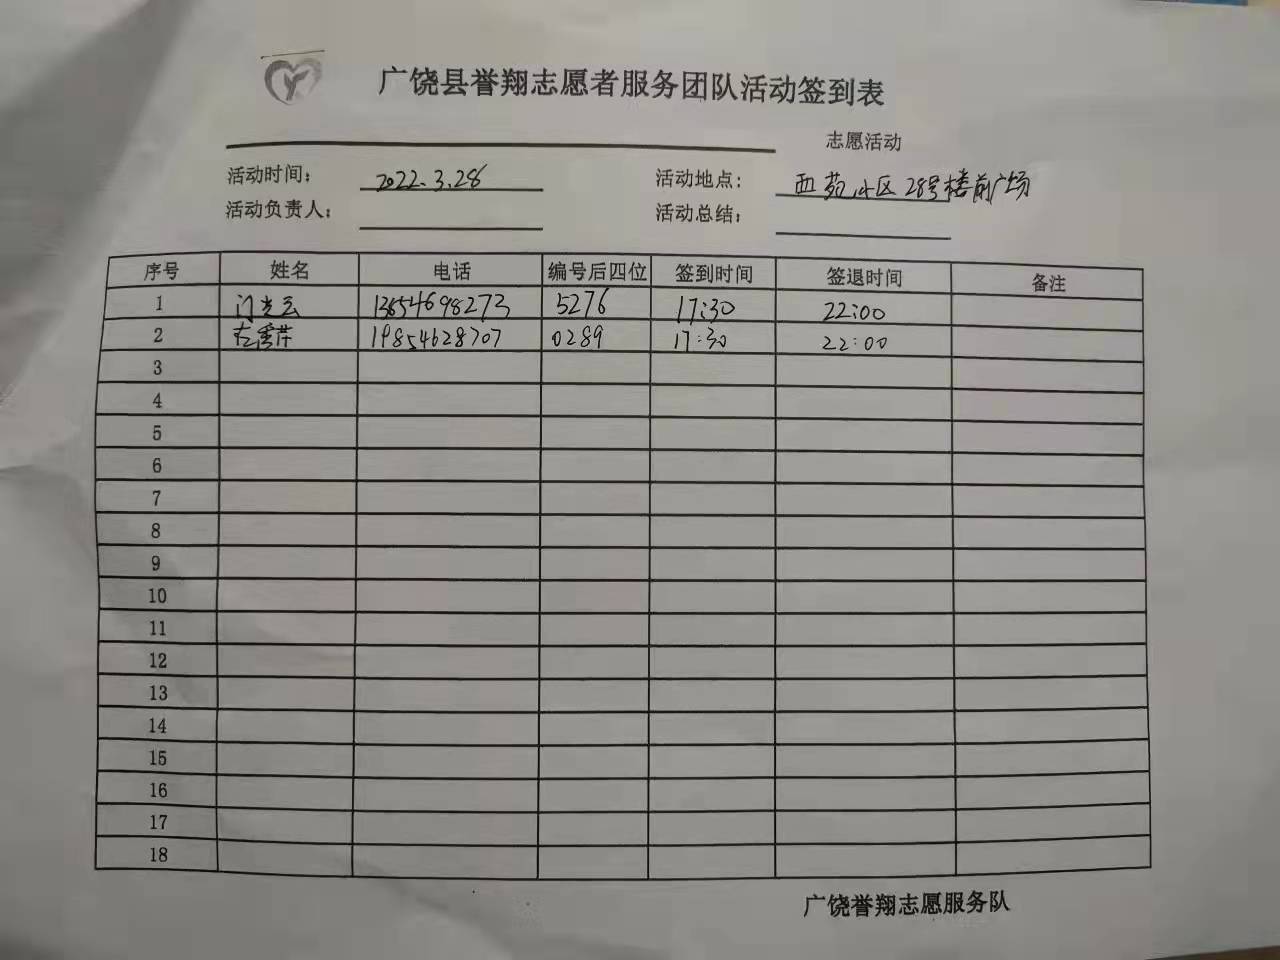 广饶县誉翔志愿者服务团队活动签到表
志愿活动
活动时间： 2022.3.28 活动地点： 西苑小区28号楼前广场
活动负责人： 活动总结：
序号 姓名 电话 编号后四位 签到时间 签退时间 备注
1 13654698273 5276 17:30 22:00
2 19854628707 0289 17:30 22:00
3
4
5
6
7
8
9
10
11
12
13
14
15
16
17
18
广饶誉翔志愿服务队